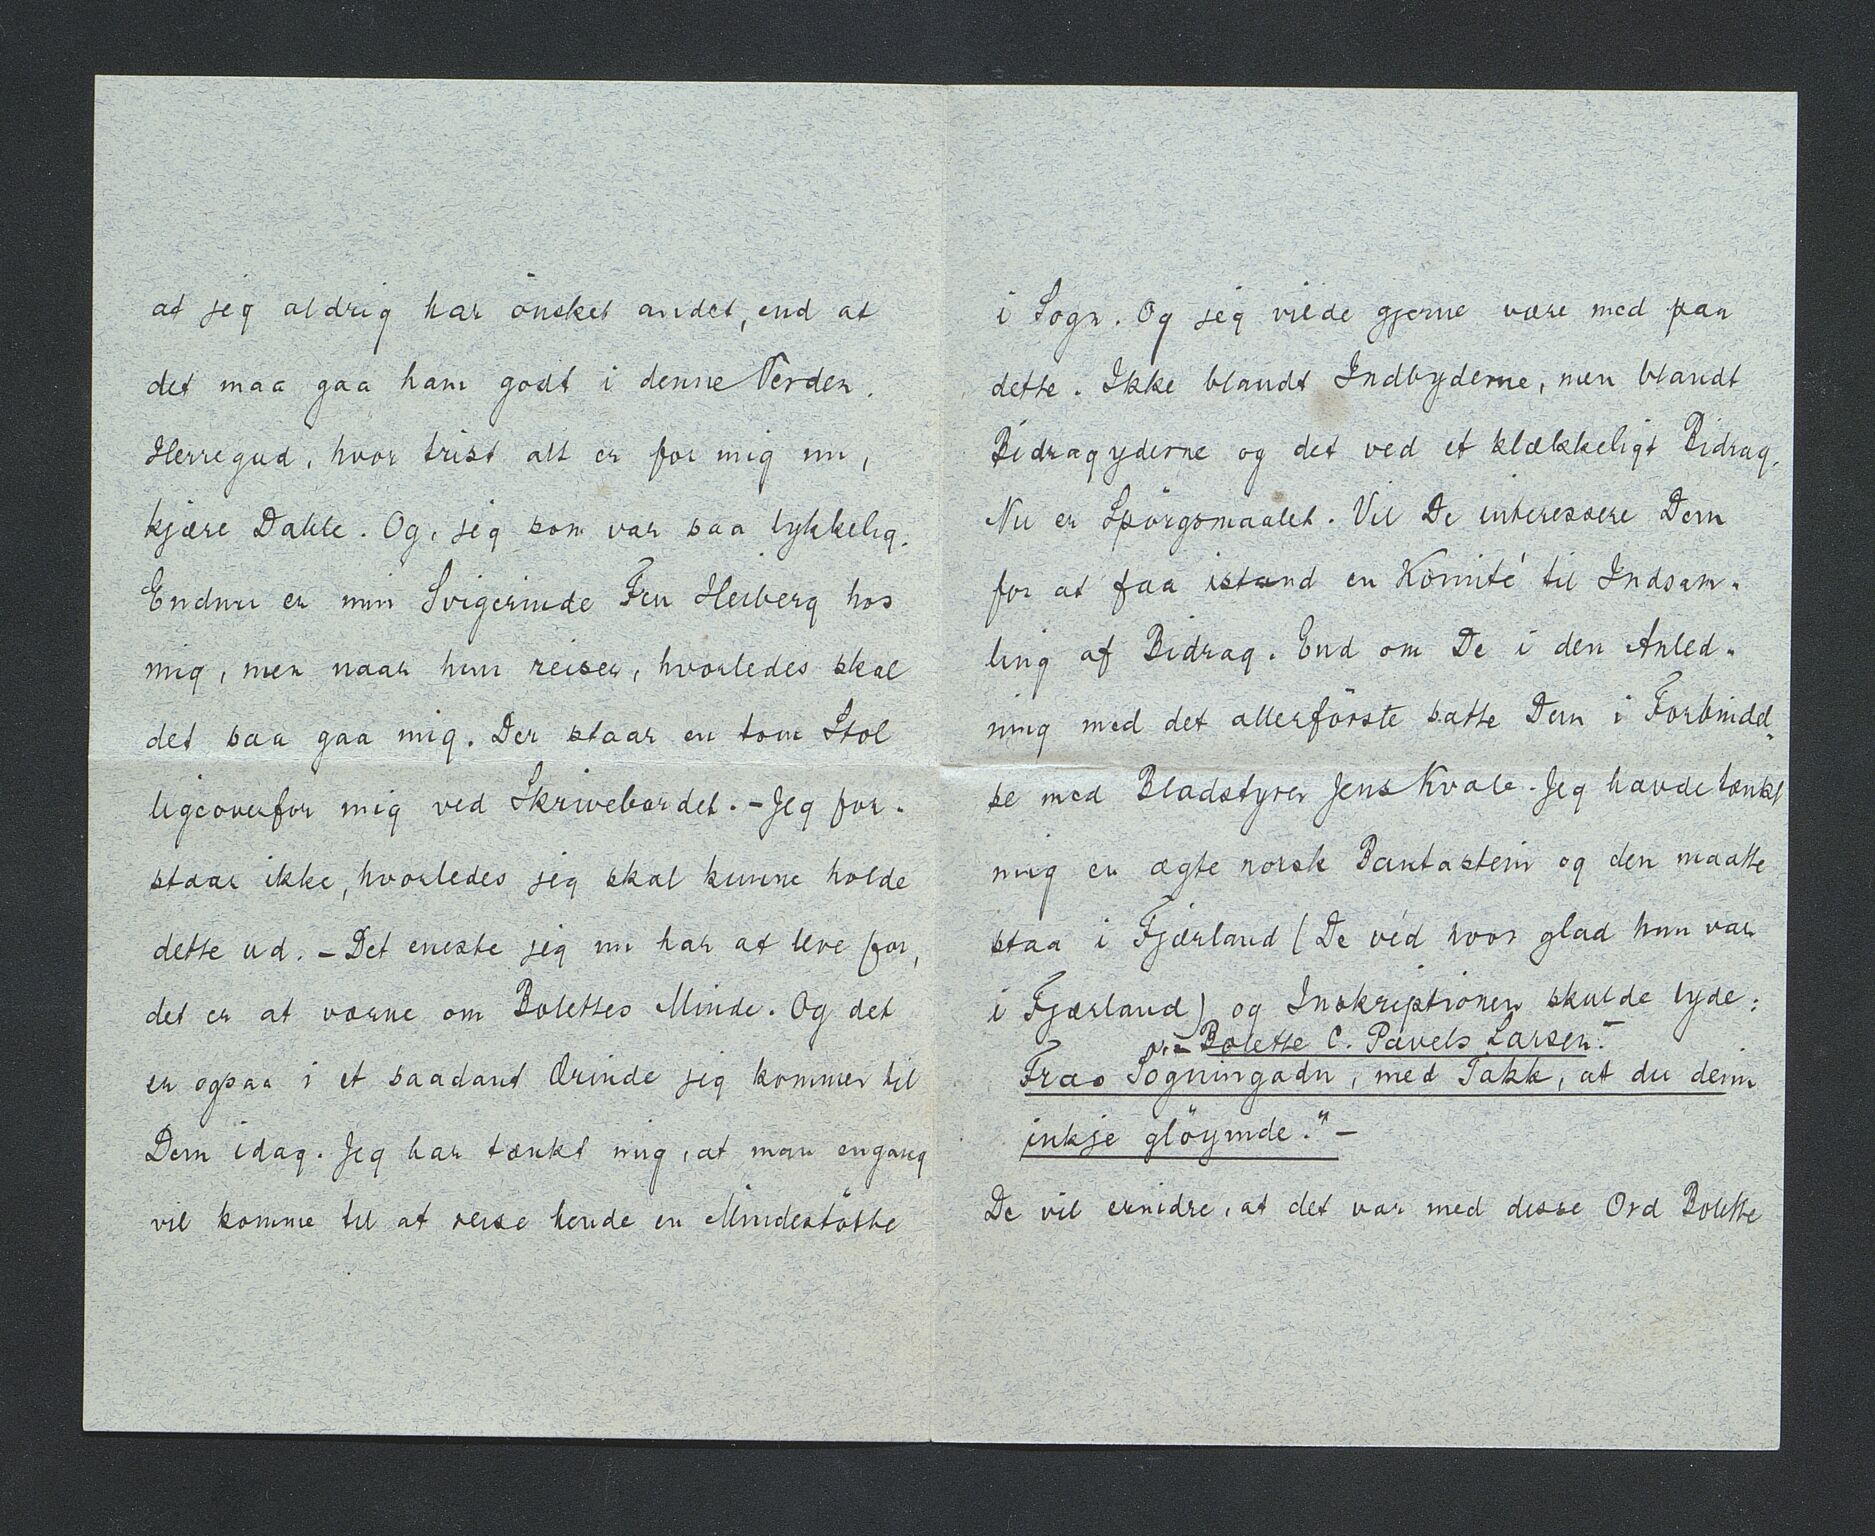 at jeg aldrig har önsket andet, end at
det maa gaa ham godt i denne Verden.
Herregud, hvor trist alt er for mig nu,
kjære Dahle. Og, jeg som var saa lykkelig.
Endnu er min Svigerinde Fru Heiberg hos
mig, men naar hun reiser, hvorledes skal
det saa gaa mig. Der staar en tom Stol
ligeoverfor mig ved Skrivebordet. – Jeg for-
staar ikke, hvorledes jeg skal kunne holde
dette ud. – Det eneste jeg nu har at leve for,
det er at værne om Bolettes Minde. Og det
er ogsaa i et saadant Ærinde jeg kommer til
Dem idag. Jeg har tænkt mig, at man engang
vil komme til at reise hende en Mindestötte
i Sogn. Og jeg vilde gjerne være med paa
dette. Ikke blandt Indbyderne, men blandt
Bidragyderne og det ved et klækkeligt Bidrag.
Nu er Spörgsmaalet. Vil De interessere Dem
for at faa istand en Komité til Indsam-
ling af Bidrag. End om De i den Anled-
ning med det allerförste satte Dem i Forbindel-
se med Bladstyrer Jens Kvale. Jeg havde tænkt
mig en ægte norsk Bautastein og den maatte
staa i Fjærland (De véd hvor glad hun var
i Fjærland) og Inskriptionen skulde lyde:
Bolette C. Pavels Larsen.
Frao Sogningadn, med Takk, at du deim
inkje glöymde." –
De vil erindre, at det var med disse Ord Bolette